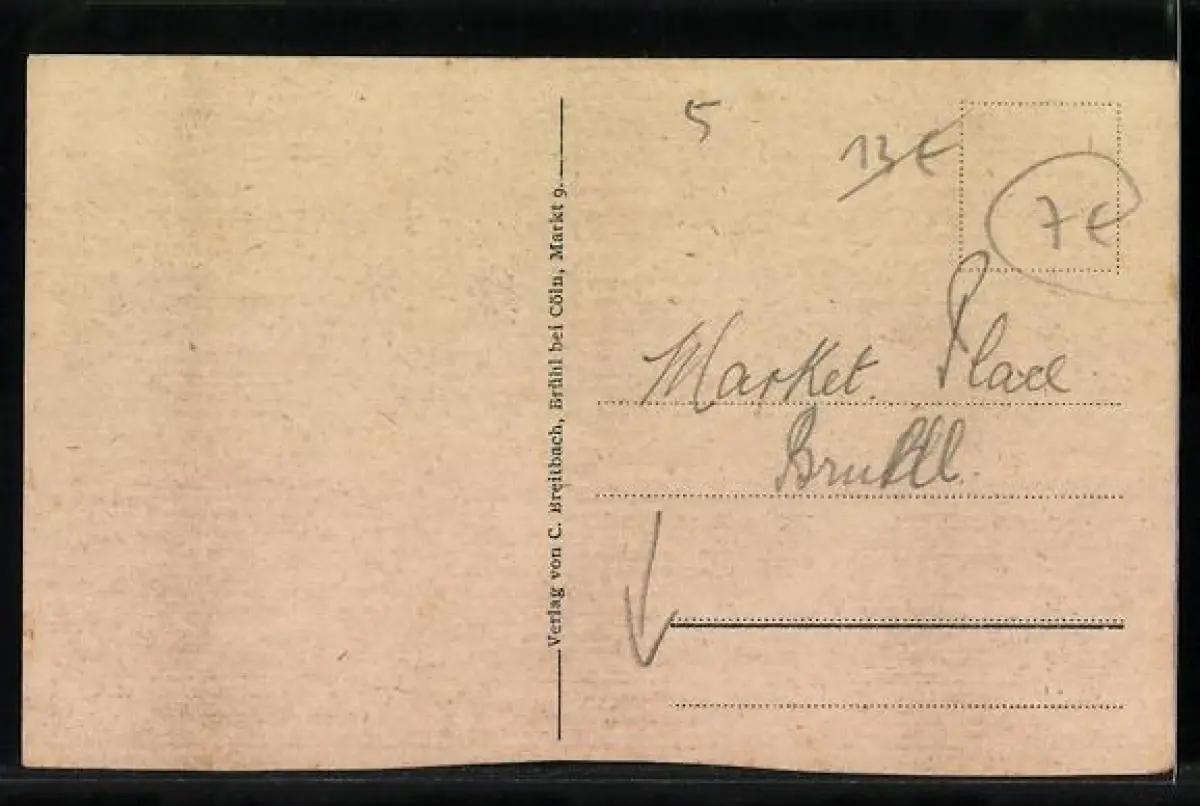 Verlag von C. Breitbach, Brühl bei Cöln, Markt 9.
5
13 €
7 €
Market. Place
Bruhll.